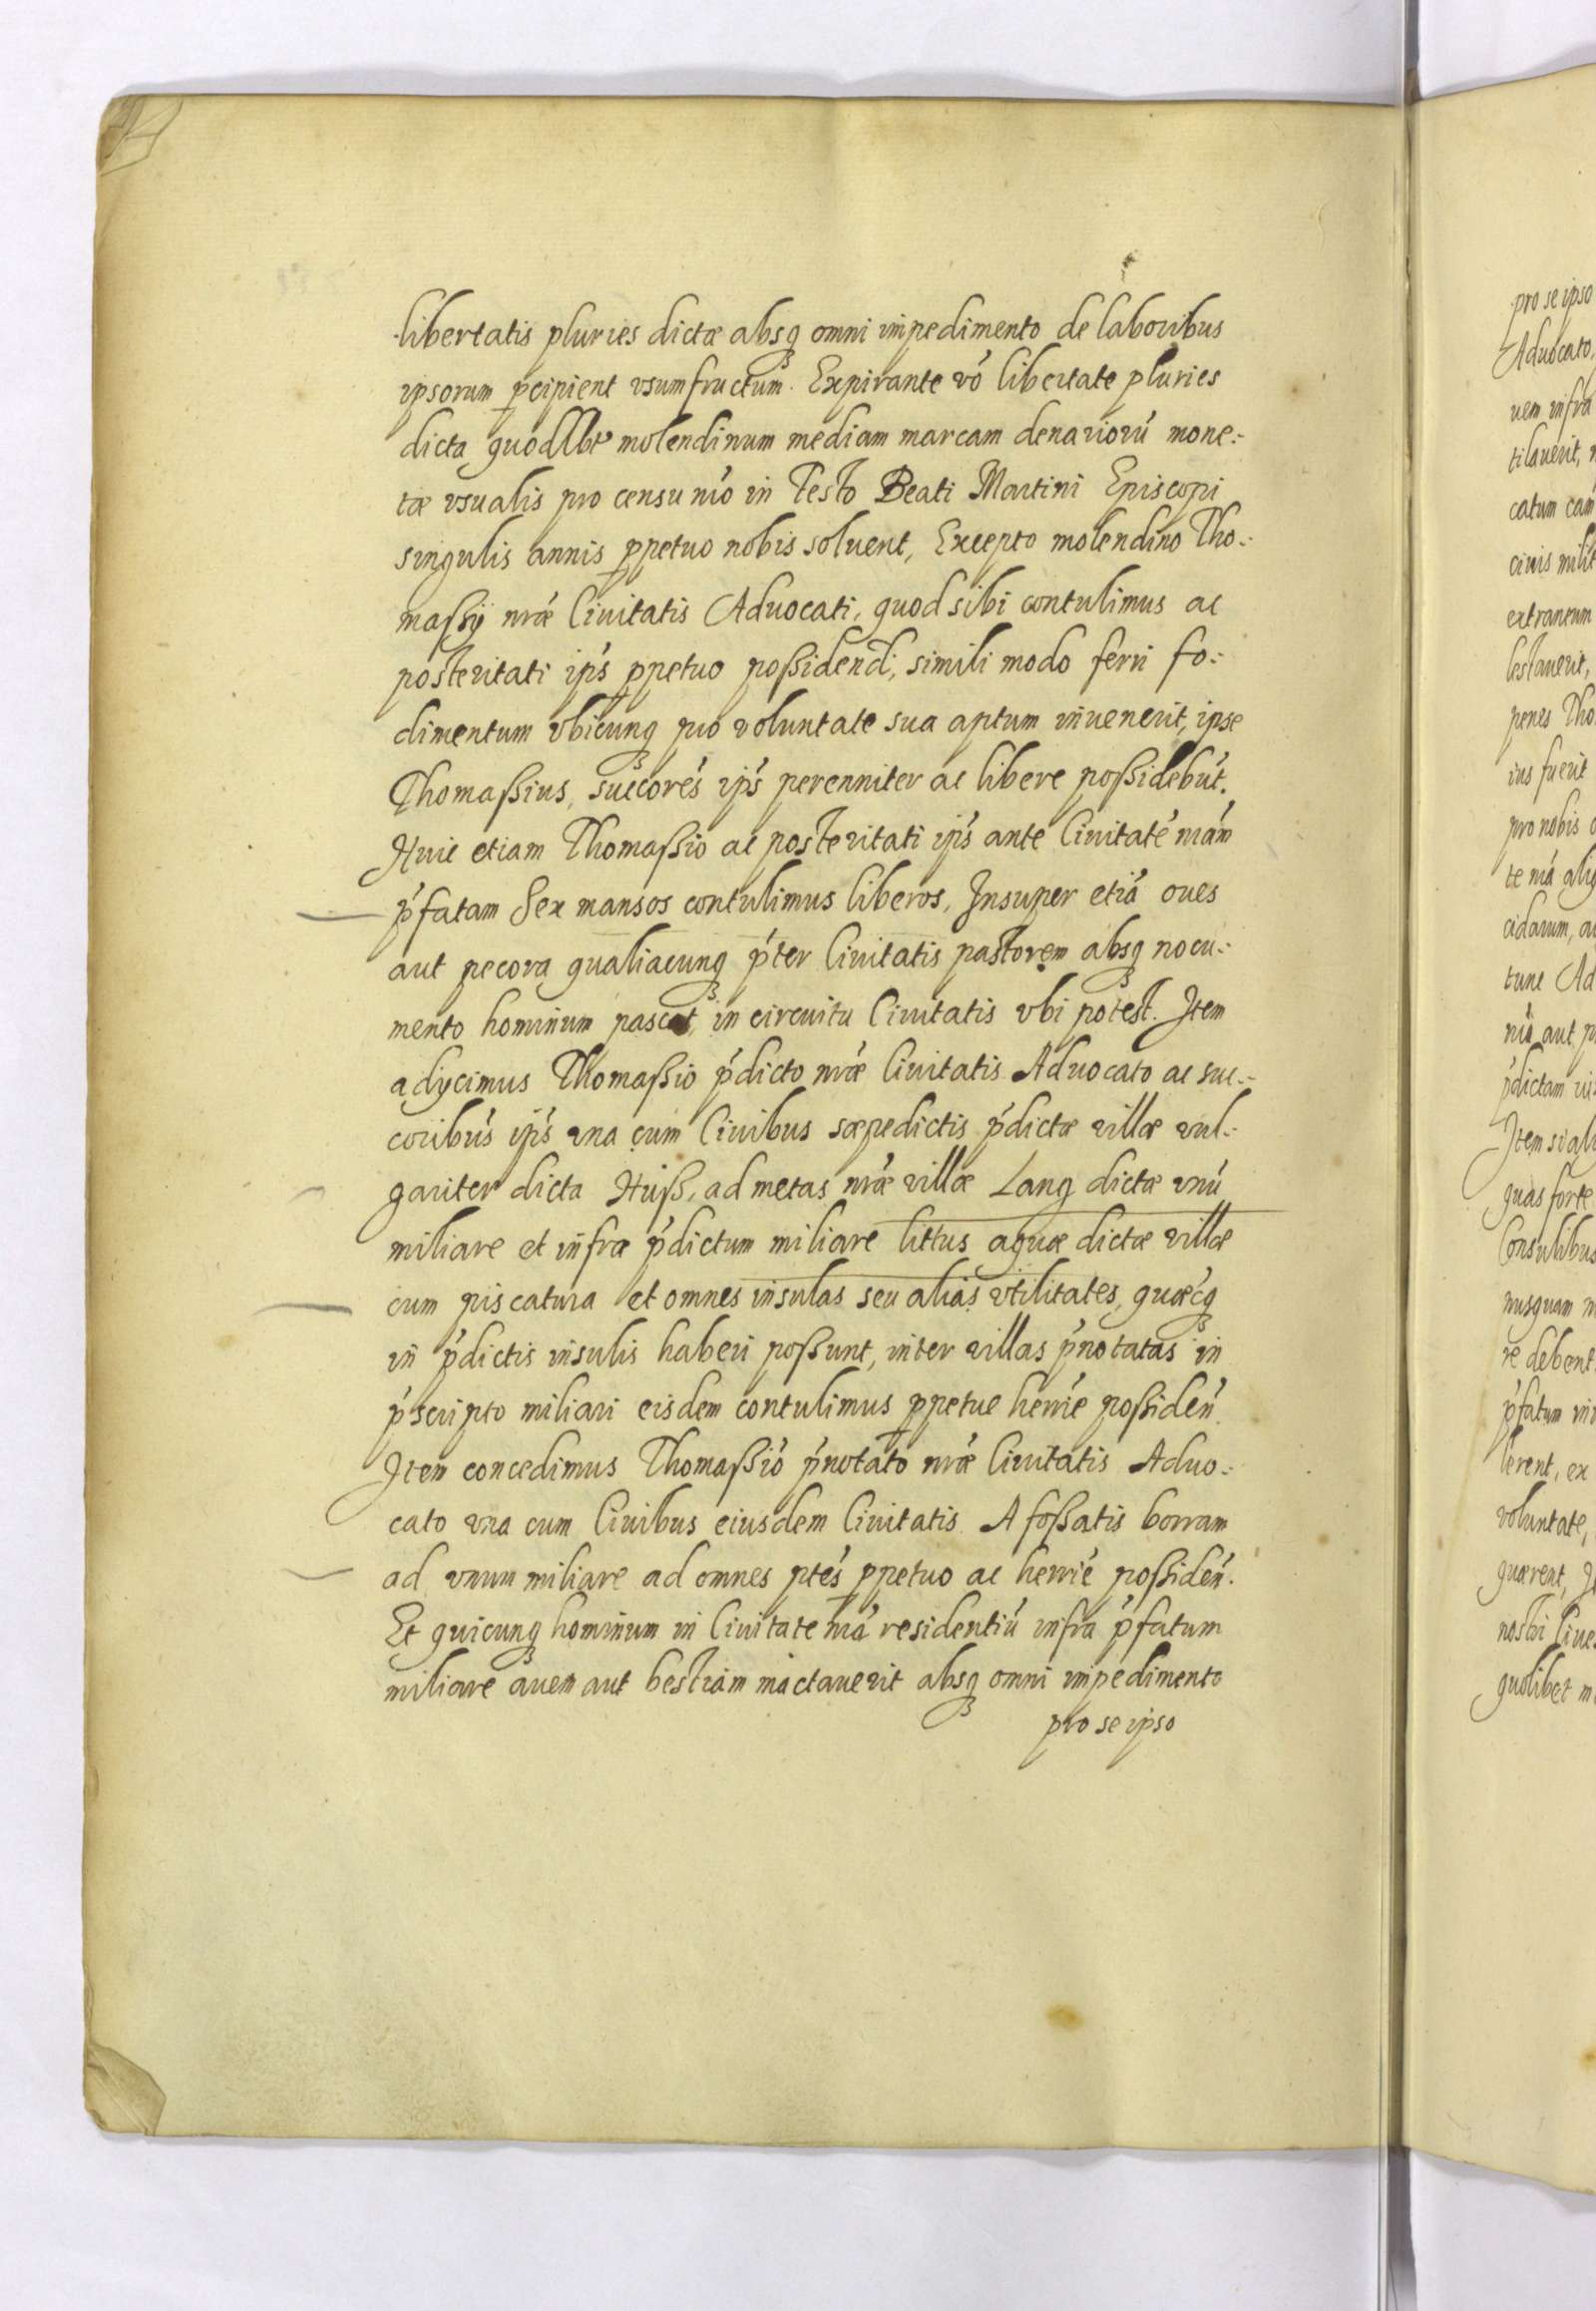 libertatis pluries dictæ absq₃ omni impedimento de laboribus
ipsorum ꝑcipient vsumfructum. Expirante vó libertate pluries
dicta quodlbt molendinum mediam marcam denariorú mone⹀
tæ vsualis pro censu nró in Festo Beati Martini Episcopi
singulis annis ꝑpetuo nobis soluent, Excepto molendino Tho⹀
maßij nræ Ciuitatis Aduocati, quod sibi contulimus ac
posteritati ips ꝑpetuo poßidend, simili modo ferri fo⹀
dimentum vbicunq₃ pro voluntate sua aptum inuenerit, ipse
Thomaßius, succores ips perenniter ac libere poßidebút.
Huic etiam Thomaßio ac posteritati ips ante Ciuitaté nrám
ṕfatam Sex mansos contulimus liberos, Insuper etiá oues
aut pecora qualiacunq₃ ṕter Ciuitatis pastorem absq₃ nocu⹀
mento hominum pascat, in circuitu Ciuitatis vbi potest. Item
adijcimus Thomaßio ṕdicto nræ Ciuitatis Aduocato ac suc⹀
coribus ips vna cum Ciuibus sæpedictis ṕdictæ villæ vul⹀
gariter dicta Huß, ad metas nræ villæ Lang dictæ vnú
miliare et infra ṕdictum miliare littus aquæ dictæ villæ
cum piscatura et omnes insulas seu alias vtilitates, quæcq₃
in ṕdictis insulis haberi poßunt, inter villas ṕnotatas in
ṕscripto miliari eisdem contulimus ꝑpetue herrie poßideń
Item concedimus Thomaßio ṕnotato nræ Ciuitatis Aduo⹀
cato vna cum Ciuibus eiusdem Ciuitatis A foßatis borram
ad vnum miliare ad omnes ptés ꝑpetuo ac herrié poßideń.
Et quicunq₃ hominum in Ciuitate nrá residentiú infra ṕfatum
miliare auem aut bestiam mactauerit absq₃ omni impedimento
pro se ipso
pro se ipso
Aduocato,
uem infra
tilauerit,
catum
ciuis
extraneum
lestauerit,
penes Tho
ius fuerit
pro nobis
te nrá
cidarum,
tunc Ad
nrá aut
ṕdictam
Item si
quas forte
Consulibus
nusquam
re debent
ṕfatum
lerent, ex
voluntate,
quærent,
nostri Ciues
quolibet